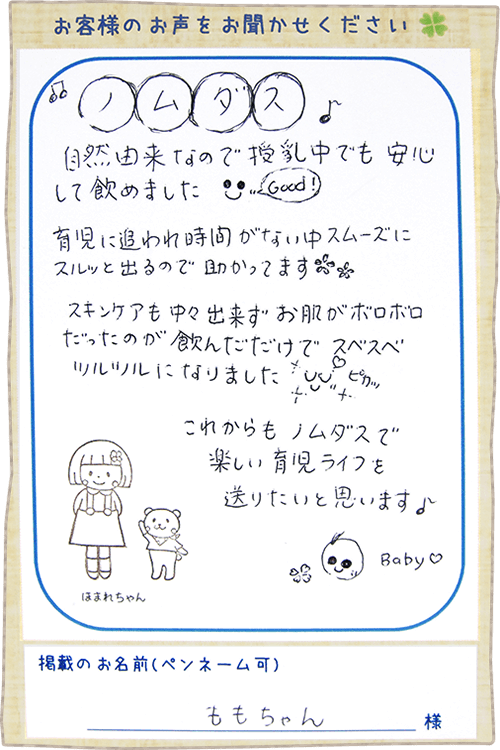 お客様のお声をお聞かせください
ノムダス
自然由来なので授乳中でも安心
して飲めました Good!
育児に追われ時間がない中スムーズに
スルッと出るので助かってます
スキンケアも中々出来ずお肌がボロボロ
だったのが飲んだだけでスベスベ
ツルツルになりました ピカッ
これからもノムダスで
楽しい育児ライフを
送りたいと思います♪
Baby♡
ほまれちゃん
掲載のお名前(ペンネーム可)
ももちゃん 様